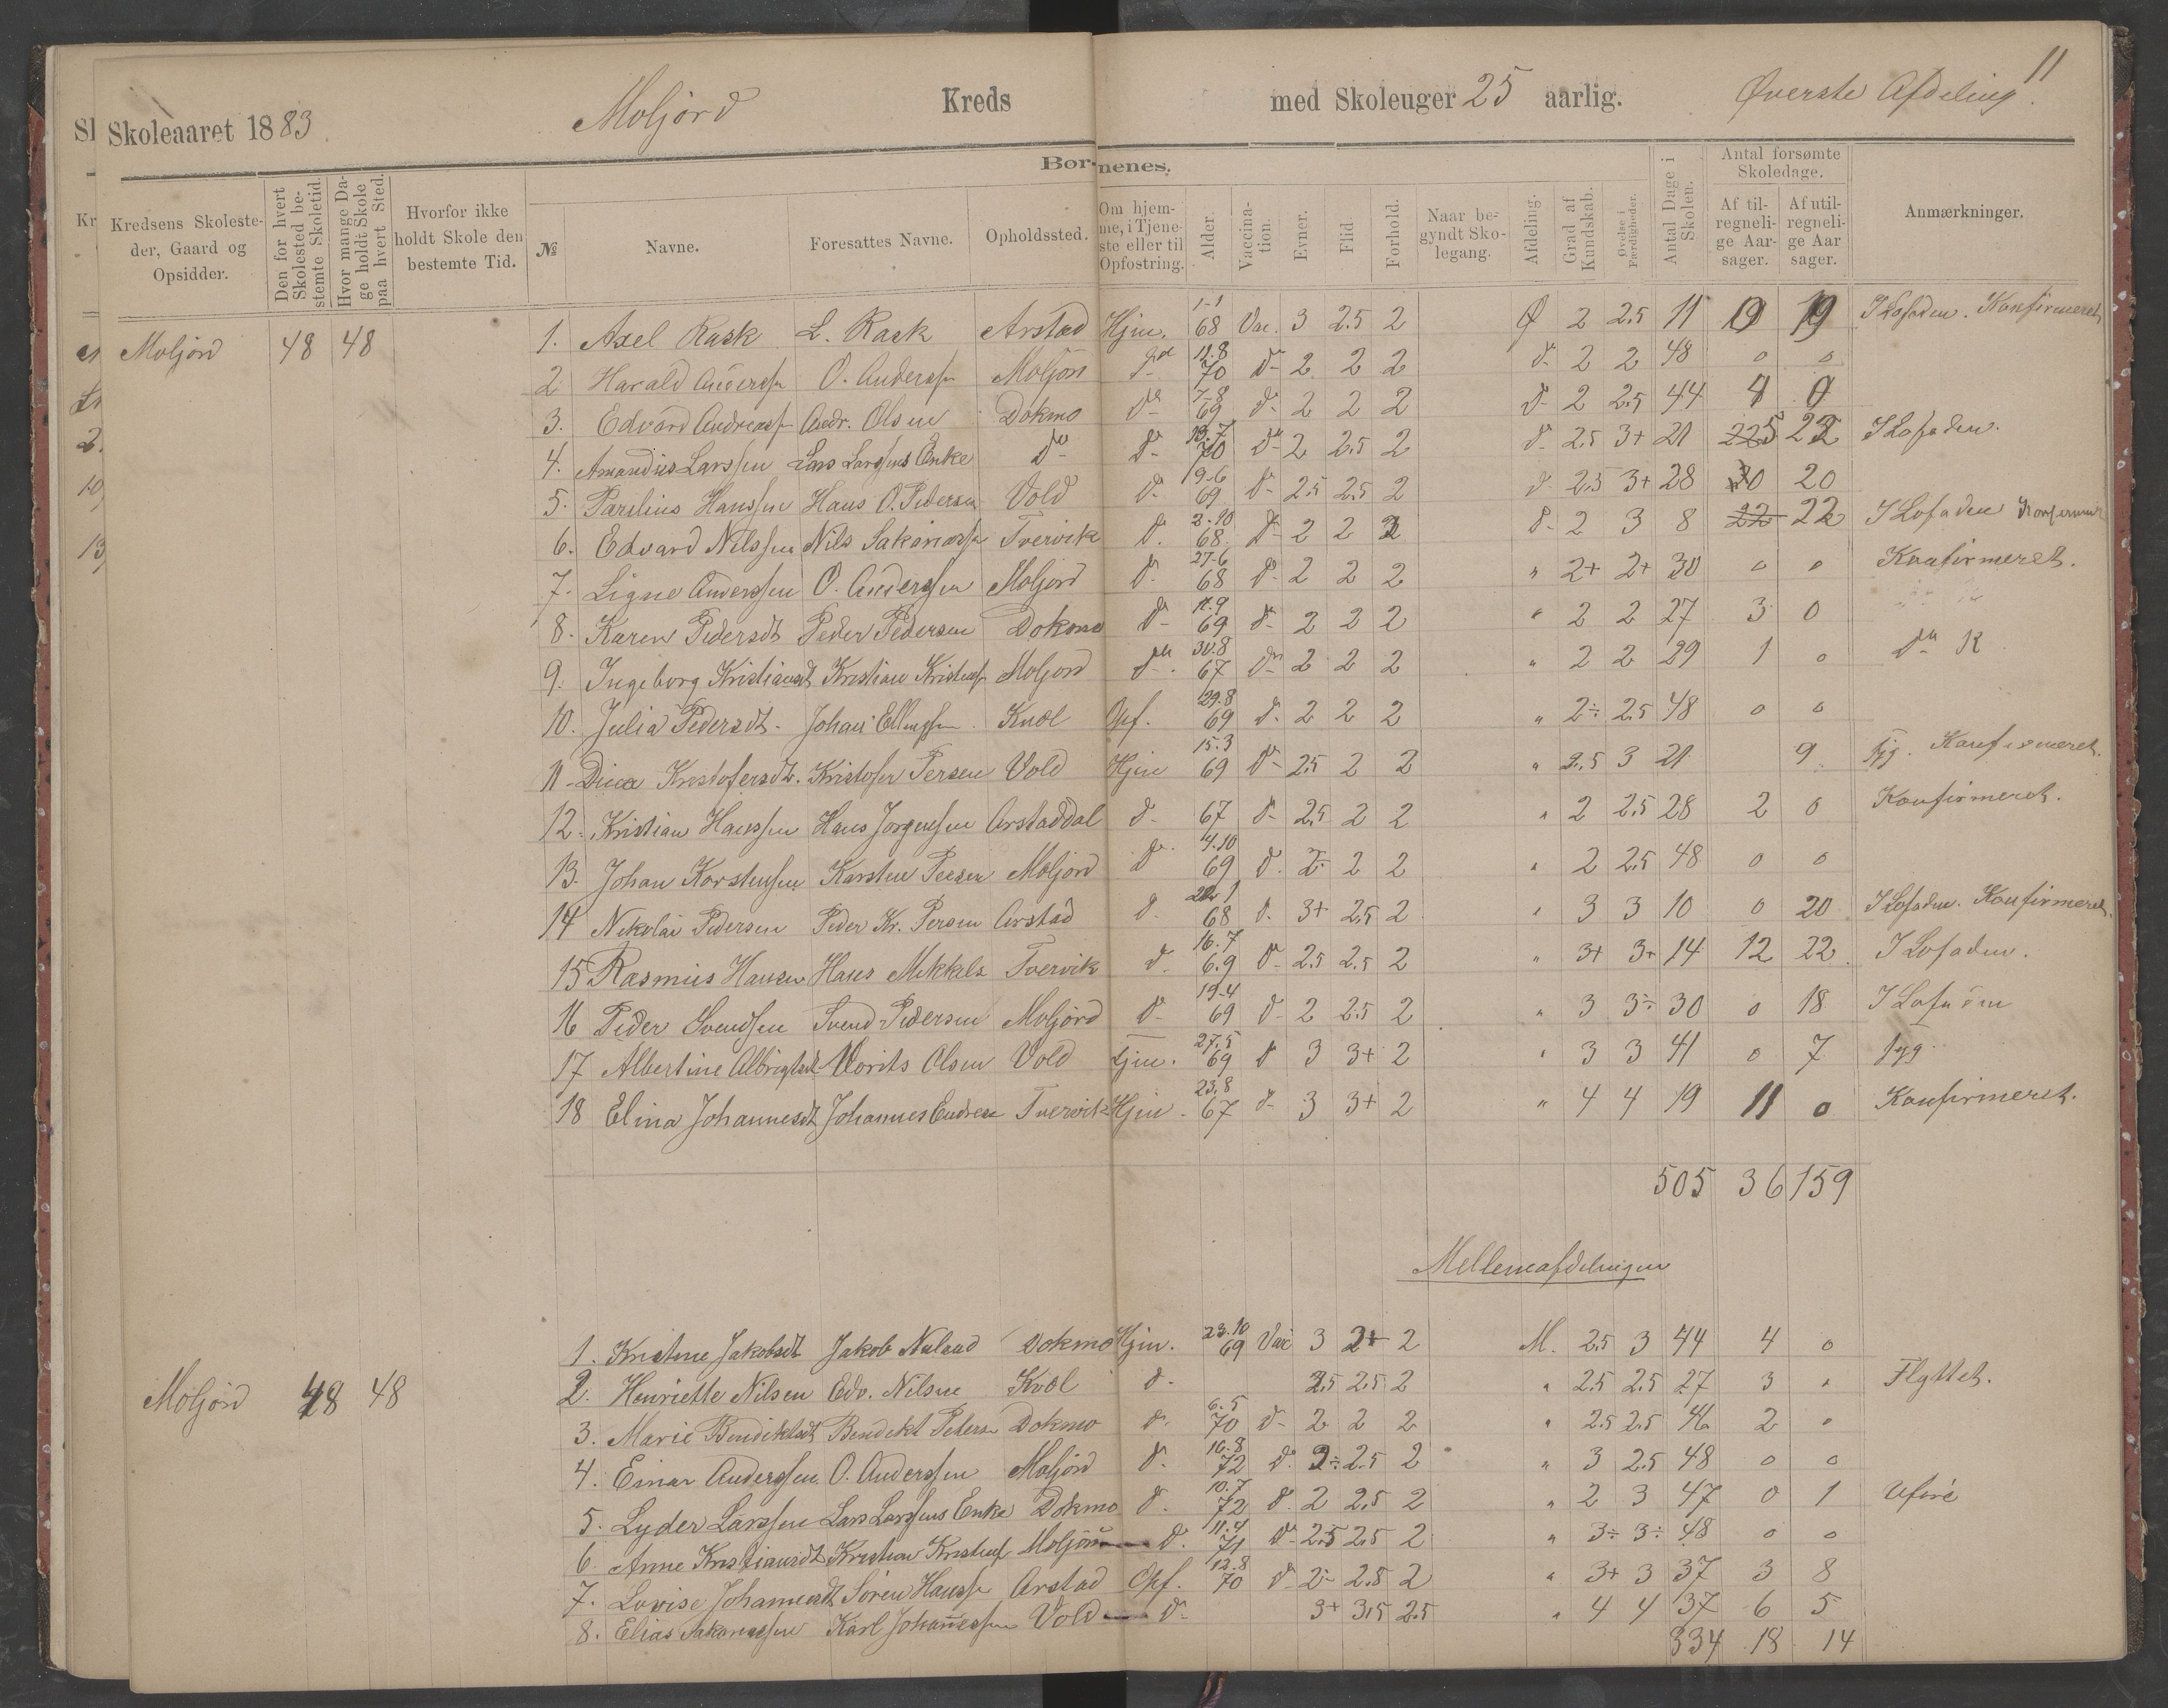 11
Skoleaaret 1883. Moljord Kreds med Skoleuger 25 aarlig. Øverste Afdeling.
Børnenes.
Kredsens Skolesteder, Gaard og Opsidder. | Den for hvert Skolested bestemte Skoletid. | Hvor mange Dage holdt Skole paa hvert Sted. | Hvorfor ikke holdt Skole den bestemte Tid. | № | Navne. | Foresattes Navne. | Opholdssted. | Om hjemme, i Tjeneste eller til Opfostring. | Alder. | Vaccination. | Evner. | Flid. | Forhold. | Naar begyndt Skolegang. | Afdeling. | Grad af Kundskab. | Øvelse i Færdigheder. | Antal Dage i Skolen. | Antal forsømte Skoledage. Af tilregnelige Aarsager. | Af utilregnelige Aarsager. | Anmærkninger.
Moljord 48 48 1. Axel Rask L. Rask Arstad Hjm. 1-1 68 Vac. 3 2.5 2 Ø 2 2.5 11 19 I Lofoden. Konfirmeret
2 Harald Anderssen O. Anderssen Moljord do 11.8 70 d- 2 2 2 d- 2 2 48 0 0
3. Edvard Andreassen Andr. Olsen Dokmo d- 7-8 69 d- 2 2 2 d- 2 2.5 44 4 0
4. Amandus Larssen Lars Larssens Enke do d- 13.7 70 d- 2 2.5 2 d- 2.5 3+ 21 5 22 I Lofoden.
5. Parelius Hanssen Hans O. Pedersen Vold d- 19-6 69 d- 2.5 2.5 2 d- 2.5 3+ 28 20
6. Edvard Nilssen Nils Sakariassen Tvervik d. 2.10 68. d- 2 2 2 d- 2 3 8 22 22 I Lofoden Konfirmeret
7. Signe Anderssen O. Anderssen Moljord d. 27-6 68 d. 2 2 2 " 2+ 2+ 30 0 0 Konfirmeret.
8. Karen Pedersdt Peder Pedersen Dokmo d- 11.9 69 d- 2 2 2 " 2 2 27 3 0
9. Ingeborg Kristiansdt Kristian Kristens. Moljord d- 30.8 67 d- 2 2 2 " 2 2 29 1 0 do K
10. Julia Pedersdt. Johan Ellingssen. Kvæl Opf. 29.8 69 d. 2 2 2 " 2÷ 2.5 48 0 0
11 - Kristofersdt. Kristofer Persen Vold Hjm 15.3 69 d- 2.5 2 2 " 2.5 3 21 9. Syg. Konfirmeret.
12. Kristian Hanssen Hans Jørgensen Arstaddal d- 67 d- 2.5 2 2 " 2 2.5 28 2 0 Konfirmeret.
13. Johan Karstensen Karsten Peesen Moljord d 4.10 69 d. 2- 2 2 " 2 2.5 48 0 0
14 Nikolai Pedersen Peder Kr. Persen Arstad d. 1 68 d. 3+ 2.5 2 " 3 3 10 0 20 I Lofoden. Konfirmeret.
15 Rasmus Hansen Hans Mikkels Tvervik d. 16.7 6.9 d- 2.5 2.5 2 " 3+ 3+ 14 12 22 I Lofoden.
16 Peder Svendsen Svend Pedersen Moljord d- 19-4 69 d- 2 2.5 2 " 3 3÷ 30 0 18 I Lofoden
17 Albertine Albrigtsdt Morits Olsen Vold Tjen. 27.5 69 d 3 3+ 2 " 3 3 41 0 7 Syg.
18 Elina Johannesdt Johannes Endres. Tvervik Hjm. 23.8 67 d- 3 3+ 2 " 4 4 19 11 0 Konfirmeret.
505 36 159
Mellemafdelingen
Moljord 48 48 1. Kristine Jakobsdt Jakob Dokmo Hjm. 23.10 69 Vac 3 2+ 2 M. 2.5 3 44 4 0
2. Henriette Nilsen Edv. Nilsen Kvæl d. 2.5 2.5 2 " 2.5 2.5 27 3 " Flyttet.
3. Marie Bendiktsdt Bendikt Peders. Dokmo d. 6.5 70 d- 2 2 2 " 2.5 2.5 46 2 0
4. Einar Anderssen. O. Anderssen Moljord d. 16.8 72 d. 2÷ 2.5 2 " 3 2.5 48 0 0
5. Lyder Larssen Lars Larssens Enke Dokmo d. 10.7 72 d. 2 2.5 2 " 2 3 47 0 1
6. Anne Kristiansdt Kristian Kristens. Moljord d. 11.4 71 d- 2.5 2.5 2 " 3÷ 3÷ 48 0 0
7. Lovise Johannesdt Søren Hanss. Arstad Opf. 12.8 70 d- 2- 2.5 2 " 3+ 3 37 3 8
8. Elias Sakariassen Karl Johannessen Vold d- 3+ 3.5 2.5 " 4 4 37 6 5
334 18 14